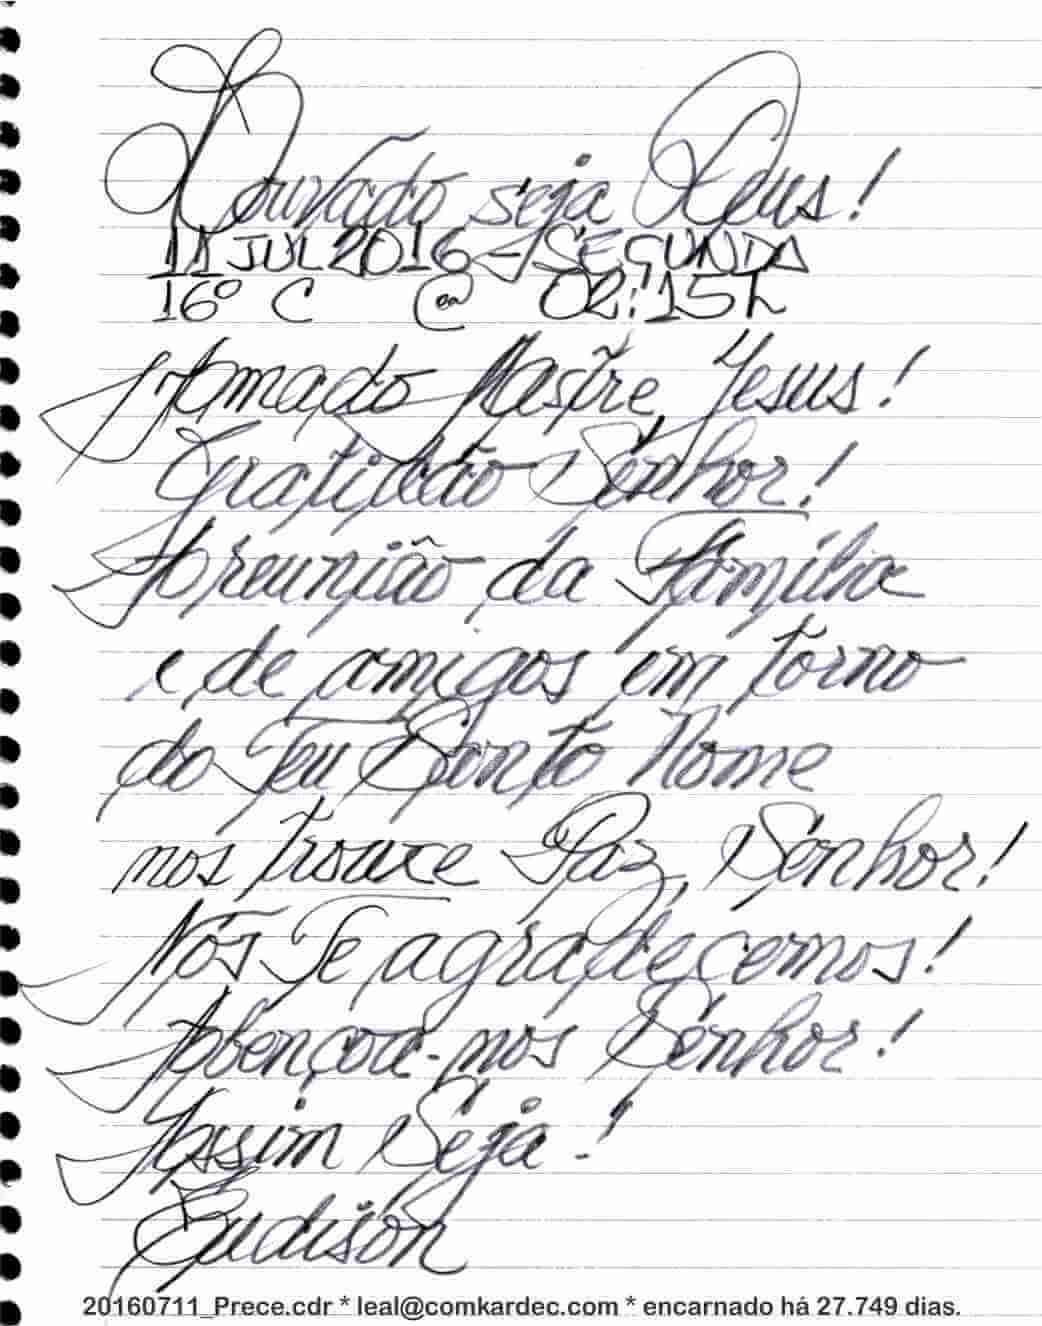 Louvado seja Deus!
11 JUL 2016 - SEGUNDA
16º C @ 02:15h
Amado Mestre Jesus!
Gratidão Senhor!
A reunião da Família
e de amigos em torno
do Teu Santo Nome
nos trouxe Paz, Senhor!
Nós Te agradecemos!
Abençoa-nos Senhor!
Assim Seja!
Eudison
20160711_Prece.cdr * leal@comkardec.com * encarnado há 27.749 dias.